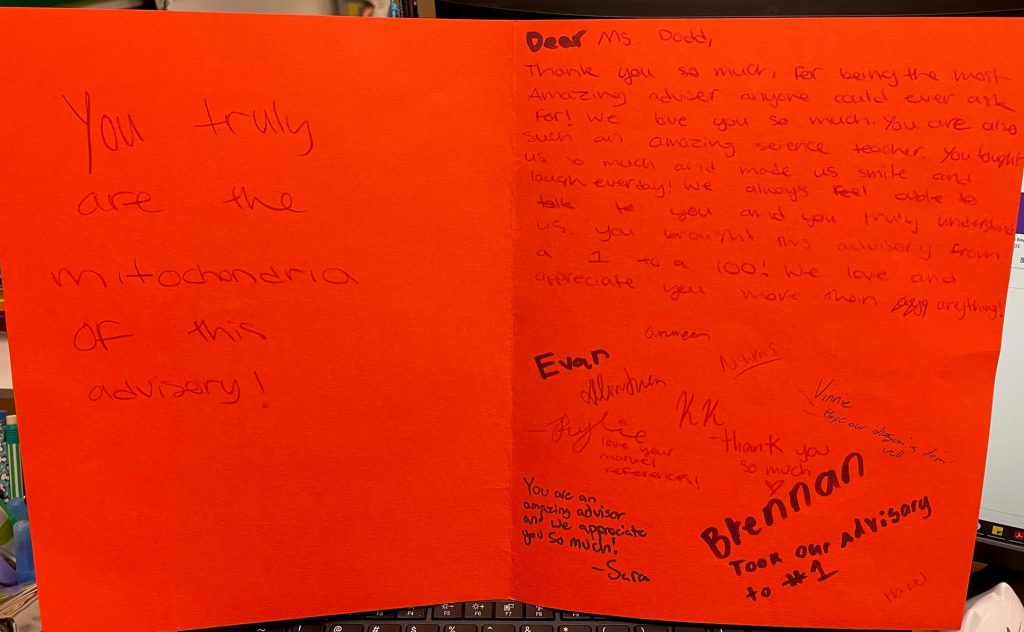 You truly
are the
mitochondria
of this
advisory!
Dear Ms. Dodd,
Thank you so much, for being the most
Amazing adviser anyone could ever ask
for! We love you so much. You are also
such an amazing science teacher. You taught
us so much and made us smile and
laugh everday! We always feel able to
talk to you and you truly understand
us. you brought this advisory from
a 1 to a 100! We love and
appreciate you more than anything!
Evan
KK
-Thank you
so much
Rylie
love your
marvel
references!
Vinnie
You are an
amazing advisor
and we appreciate
you so much!
-Sara
Brennan
Took our Advisory
to #1
F4
F5
F6
F7
F8
F9
F10
F11
F12